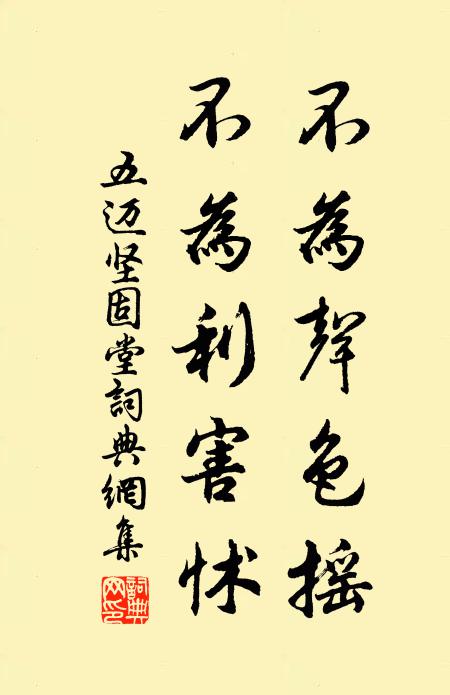 不為聲色摇
不為利害怵
五迈坚固堂詞典網集
詞典網印